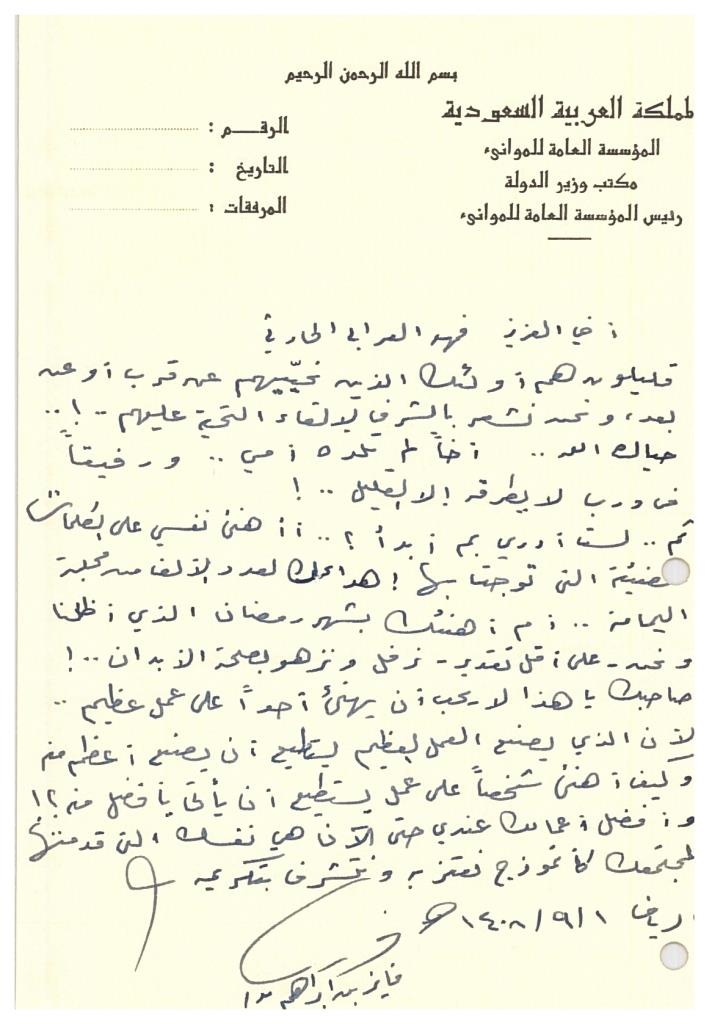 بسم الله الرحمن الرحيم
لمملكة العربية السعودية
المؤسسة العامة للموانىء
مكتب وزير الدولة
رئيس المؤسسة العامة للموانىء
الرقم :
التاريخ :
المرفقات :
أخي العزيز فهد العرابي الحارثي
قليلون هم أولئك الذين نحيّيهم عن قرب أو عن
بعد، ونحن نشعر بالشرف لإلقاء التحية عليهم .. !..
حياك الله .. أخاً لم تلده أمي .. ورفيقاً
في درب لا يطرقه إلا القليل .. !
لست أدري بم أبدأ ؟ .. أأهنئ نفسي على الكلمات
المضيئة التي توجتا بها إهداءك لعدد الألف من مجلة
اليمامة .. أم أهنئك بشهر رمضان الذي أظلنا
ونحن - على أقل تقدير - نرفل ونزهو بصحة الأبدان .. !
صاحبك يا هذا لا يحب أن يهنئ أحداً على عمل عظيم ..
لأن الذي يصنع العمل العظيم يستطيع أن يصنع أعظم منه
وكيف أهنئ شخصاً على عمل يستطيع أن يأتي بأفضل منه ؟!
وأفضل أعمالك عندي حتى الآن هي نفسك التي قدمتها
لمجتمعك كأنموذج نعتز به ونتشرف بتكريمه
الرياض ١/٩/١٤٠٨هـ
فايز بن ابراهيم بدر